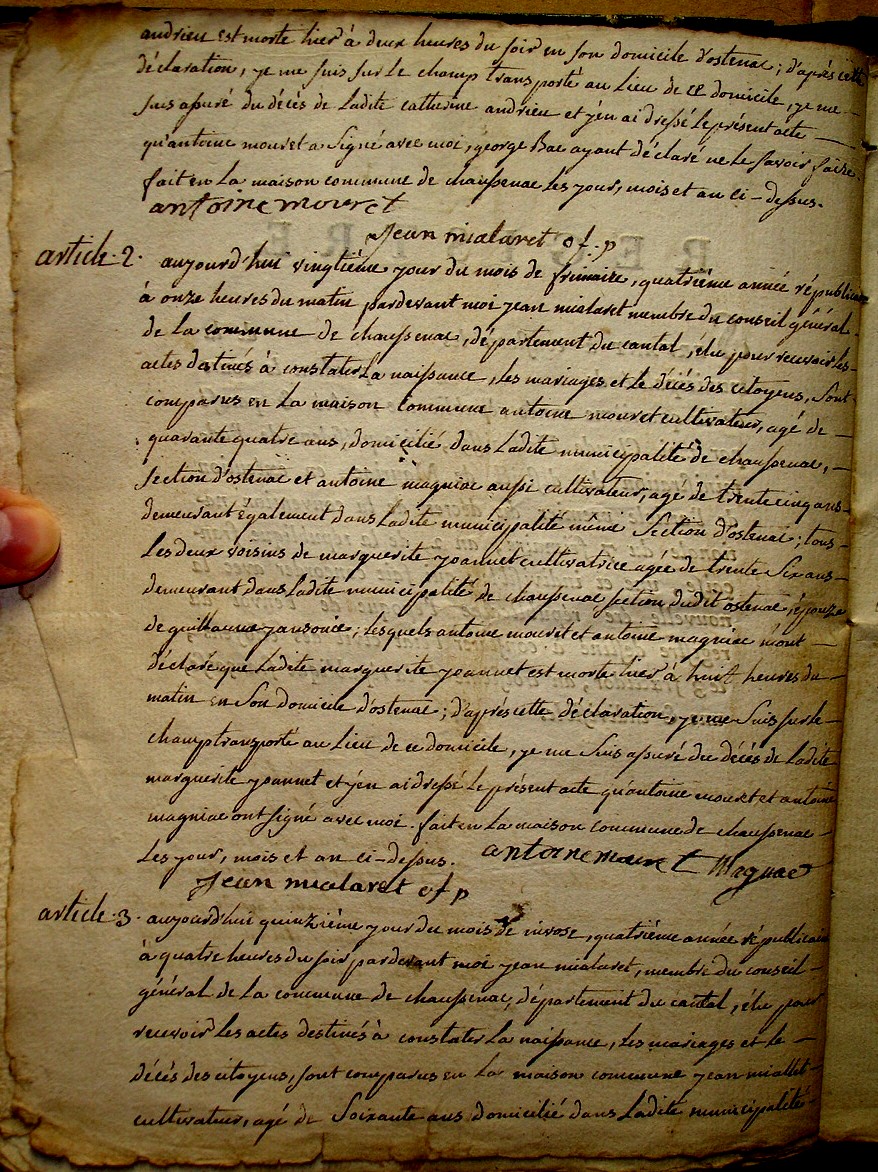 andrieu est morte hier à deux heures du soir en son domicile d'ostenac ; d'après cette
déclaration, je me suis sur le champ transporté au lieu de ce domicile, je me
suis assuré du décès de ladite catherine andrieu et j'en ai dressé le présent acte
qu'antoine mouret a signé avec moi, george Bac ayant déclaré ne le savoir faire.
fait en la maison commune de chaussenac les jour, mois et an ci-dessus.
antoine mouret
Jean mialaret of. p
article 2. aujourd'hui vingtième jour du mois de frimaire, quatrième année républicaine
à onze heures du matin pardevant moi jean mialaret membre du conseil général
de la commune de chaussenac, département du cantal, élu pour recevoir les
actes destinés à constater la naissance, les mariages et le décès des citoyens, sont
comparus en la maison commune antoine mouret cultivateur, agé de
quarante quatre ans, domicilié dans ladite municipalité de chaussenac,
section d'ostenac et antoine magniac aussi cultivateur, agé de trente cinq ans
demeurant également dans ladite municipalité même section d'ostenac ; tous
les deux voisins de marguerite joannet cultivatrice agée de trente six ans
demeurant dans ladite municipalité de chaussenac section dudit ostenac, épouze
de guillaume ; lesquels antoine mouret et antoine magniac m'ont
déclaré que ladite marguerite joannet est morte hier à huit heures du
matin en son domicile d'ostenac ; d'après cette déclaration, je me suis sur le
champ transporté au lieu de ce domicile, je me suis assuré du décès de ladite
marguerite joannet et j'en ai dressé le présent acte qu'antoine mouret et antoine
magniac ont signé avec moi. fait en la maison commune de chaussenac
les jour, mois et an ci-dessus. antoine mouret Magnac
Jean mialaret of p
article 3. aujourd'hui quinzième jour du mois de nivose, quatrième année républicaine
à quatre heures du soir pardevant moi jean mialaret, membre du conseil
général de la commune de chaussenac, département du cantal, élu pour
recevoir les actes destinés à constater la naissance, les mariages et le
décès des citoyens, sont comparus en la maison commune jean miallet
cultivateur, agé de soixante ans domicilié dans ladite municipalité